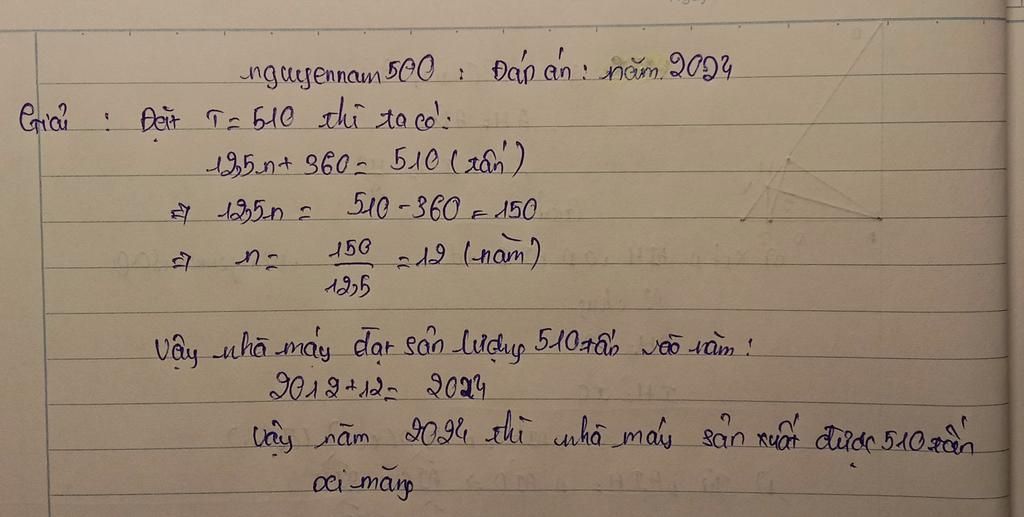 nguyennam500 : Đáp án : năm 2024
Giải : Đặt T = 510 thì ta có:
12,5n + 360 = 510 (tấn)
⇒ 12,5n = 510 - 360 = 150
⇒ n = 150/12,5 = 12 (năm)
Vậy nhà máy đạt sản lượng 510 tấn vào năm :
2012 + 12 = 2024
Vậy năm 2024 thì nhà máy sản xuất được 510 tấn
xi măng